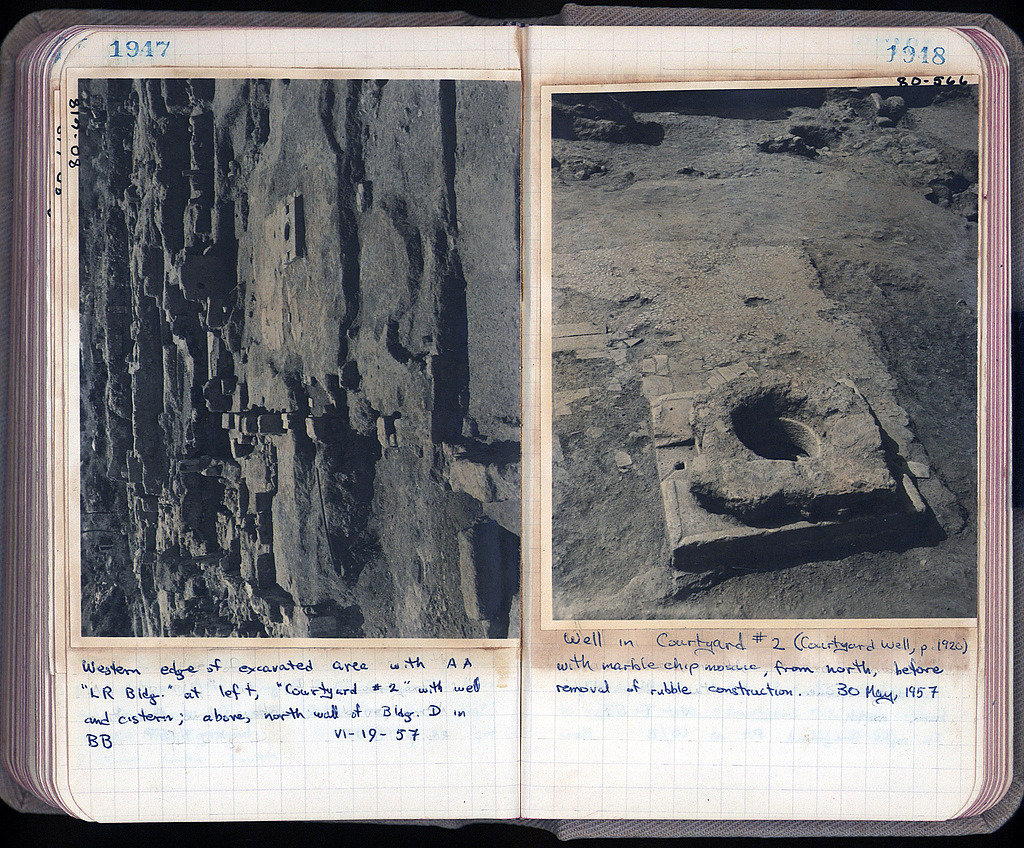 1947
80-618
Western edge of excavated area with AA
"LR Bldg." at left, "Courtyard #2" with well
and cistern; above, north wall of Bldg. D in
BB VI-19-57
1948
80-566
Well in Courtyard #2 (Courtyard Well, p. 1920)
with marble chip mosaic, from north, before
removal of rubble construction. 30 May, 1957